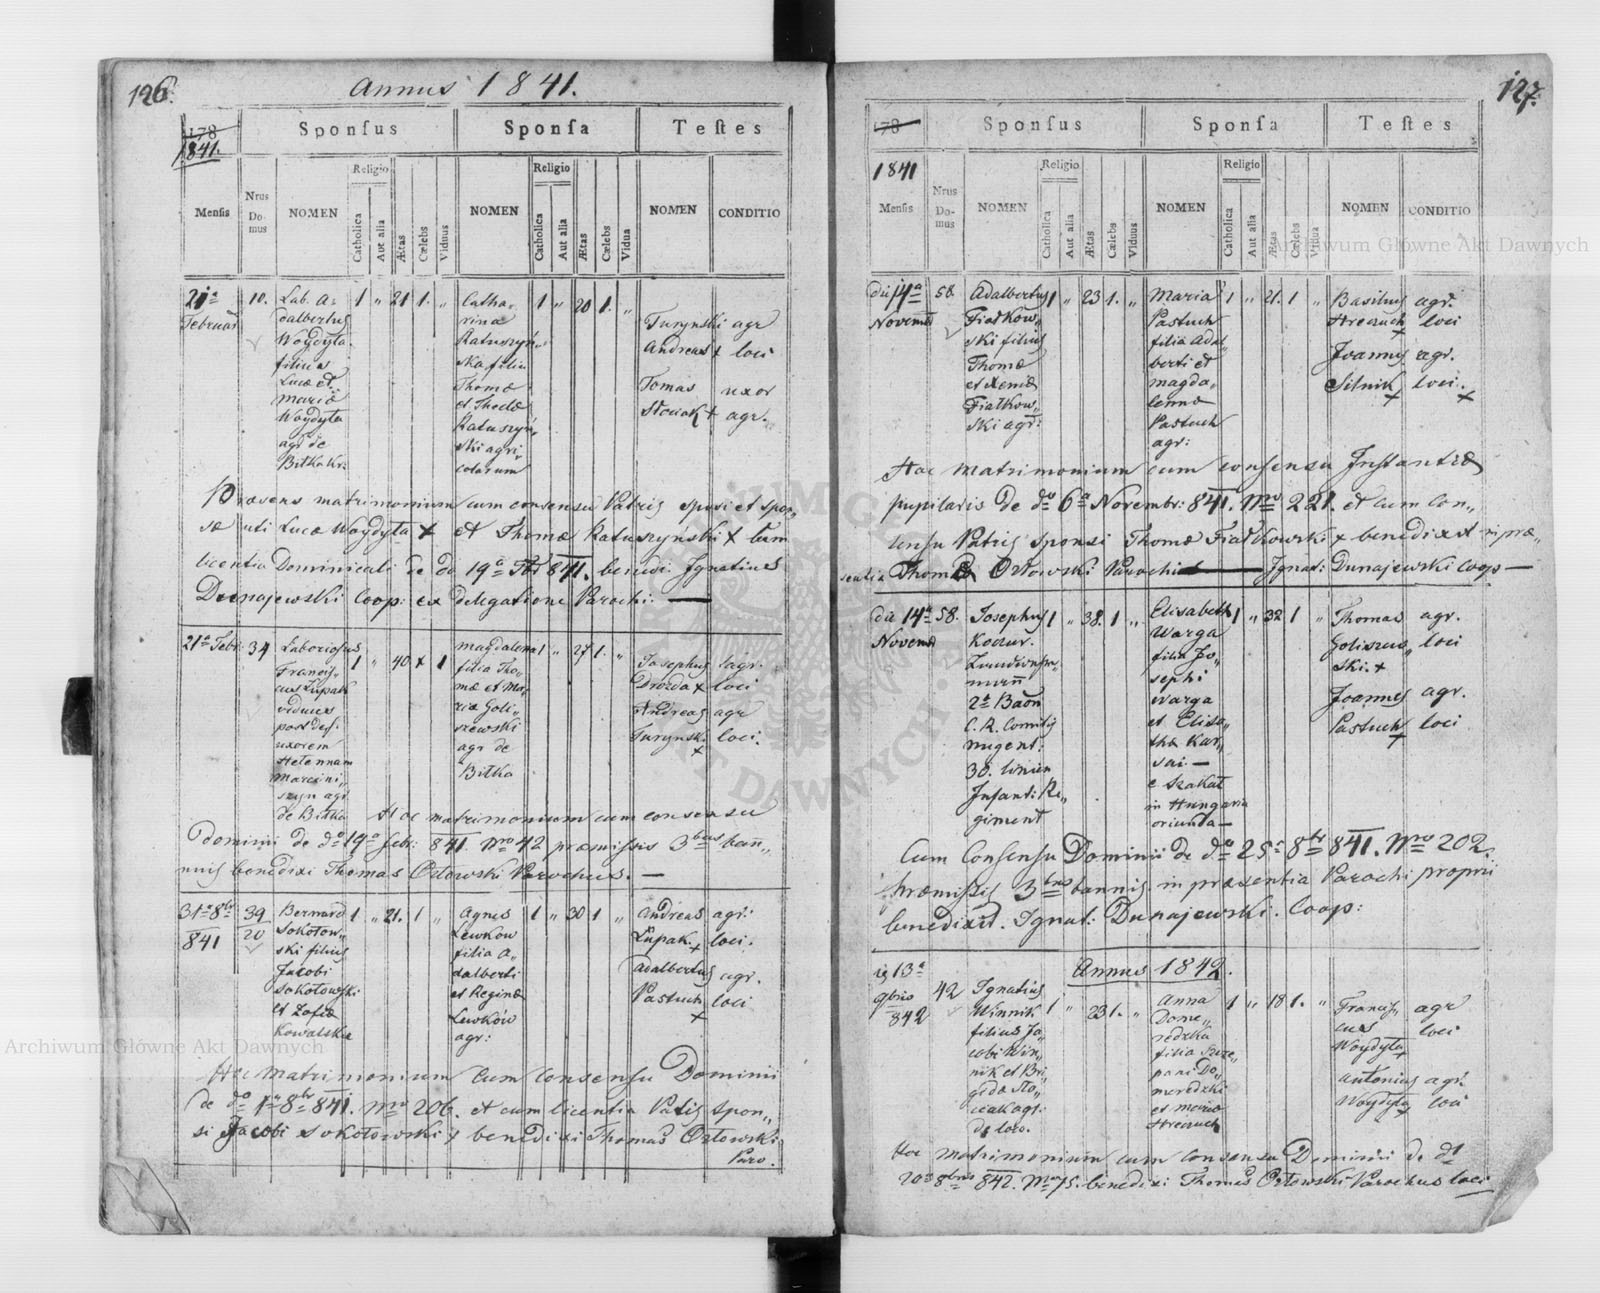 126.
Annus 1841.
178
1841.
Sponſus
Sponſa
Teſtes
Menſis
Nrus Do- mus
NOMEN
Religio
Catholica
Aut alia
Ætas
Cœlebs
Viduus
NOMEN
Religio
Catholica
Aut alia
Ætas
Cœlebs
Vidua
NOMEN
CONDITIO
21a Februar
10.
Lab. A-
dalbertus
Woydyła
filius
Lucæ et
Mariæ
Woydyła
agr de
Bitka
1 " 21 1. "
Catha-
rina
Ratuszyń-
ska filia
Thomæ
et Theclæ
Ratuszyń-
ski agri-
colarum
1 " 20 1. "
Turynski agr
Andreas + loci
Tomas uxor
+ agr.
Præsens matrimonium cum consensu Patris sponsi et spon-
sæ uti Lucæ Woydyła + et Thomæ Ratuszynski + tum
licentia Dominicali de do 19a 841. bened: Ignatius
Dunajewski Coop: ex delegatione Parochi.
21a Febr:
34
Laboriosus
Francis-
cus Łupak
viduus
post def:
uxorem
Helennam
Marcini-
szyn agr
de Bitka
1 " 40 + 1
Magdalena
filia Tho-
mæ et Ma-
riæ Goli-
szewski
agr de
Bitka
1 " 27 1. "
Josephus agr.
Drozda + loci
Andreas agr
Turynski loci.
+
Hoc matrimonium cum consensu
Dominii de do 19a febr: 841. Nro 42 præmissis 3bus ban-
nis benedixi Thomas Orłowski Parochus. —
31a 8br
841
39
20
Bernard
Sokołow-
ski filius
Jacobi
Sokołowski
et Zofiæ
Kowalska
1 " 21. 1 "
Agnes
Lewkow
filia A-
dalberti
et Reginæ
Lewków
agr:
1 " 30 1 "
Andreas agr:
Łupak + loci.
Adalbertus agr.
Pastuch loci
+
Hoc matrimonium cum consensu Dominii
de do 1a 8br 841. Nro 206. et cum licentia Patris spon-
si Jacobi Sokołowski + benedixi Thomas Orłowski
Paro.
127.
178
1841
Sponſus
Sponſa
Teſtes
Menſis
Nrus Do- mus
NOMEN
Religio
Catholica
Aut alia
Ætas
Cœlebs
Viduus
NOMEN
Religio
Catholica
Aut alia
Ætas
Cœlebs
Vidua
NOMEN
CONDITIO
die 14a
Novemb
58.
Adalbertus
Fiałkow-
ski filius
Thomæ
et Xeniæ
Fiałkow-
ski agr:
1 " 23 1. "
Maria
Pastuch
filia Adal-
berti et
Magda-
lennæ
Pastuch
agr:
1 " 21. 1 "
Basilius agr:
Hreczuch loci
+
Joannes agr.
Silnik loci.
+ +
Hoc matrimonium cum consensu Instantiæ
pupilaris de do 6a Novembr: 841. Nro 221. et cum con-
sensu Patris sponsi Thomæ Fiałkowski + benedixit in præ-
sentia Thomæ Orłowski Parochi — Ignat: Dunajewski Coop —
die 14a
Novemb
58.
Josephus
2a Baon
C. R. Comitis
nugent:
30. linien
Infant: Re-
giment
1 " 38. 1 "
Elisabeth
Warga
filia Jo-
sephi
Warga
et Elisa-
thæ Kar-
sai. —
e Szakal
in Hungaria
oriunda —
1 " 32 1 "
Thomas agr.
Goliszew- loci
ski. +
Joannes agr.
Pastuch loci
+
Cum Consensu Dominii de do 25a 8br 841. Nro 202.
præmissis 3bus bannis in præsentia Parochi proprii
benedixit. Ignat: Dunajewski. Coop:
Annus 1842.
13a
9bris
842
42
Ignatius
Winnik
filius Ja-
cobi Win-
nik et Bri-
gida Sło-
ciak agr.
de loco.
1 " 23 1. "
Anna
Dome-
redzka
filia Szcze-
pani Do-
meredzki
et Mariæ
Hreczuch
1 " 18 1. "
Francis- agr
cus loci
Woydyła
+
Antonius agr.
Woydyła loci
+
Hoc matrimonium cum consensu Dominii de do
20a 8bris 842. Nro 75. benedixi Thomas Orłowski Parochus loci
Archiwum Główne Akt Dawnych
Archiwum Główne Akt Dawnych